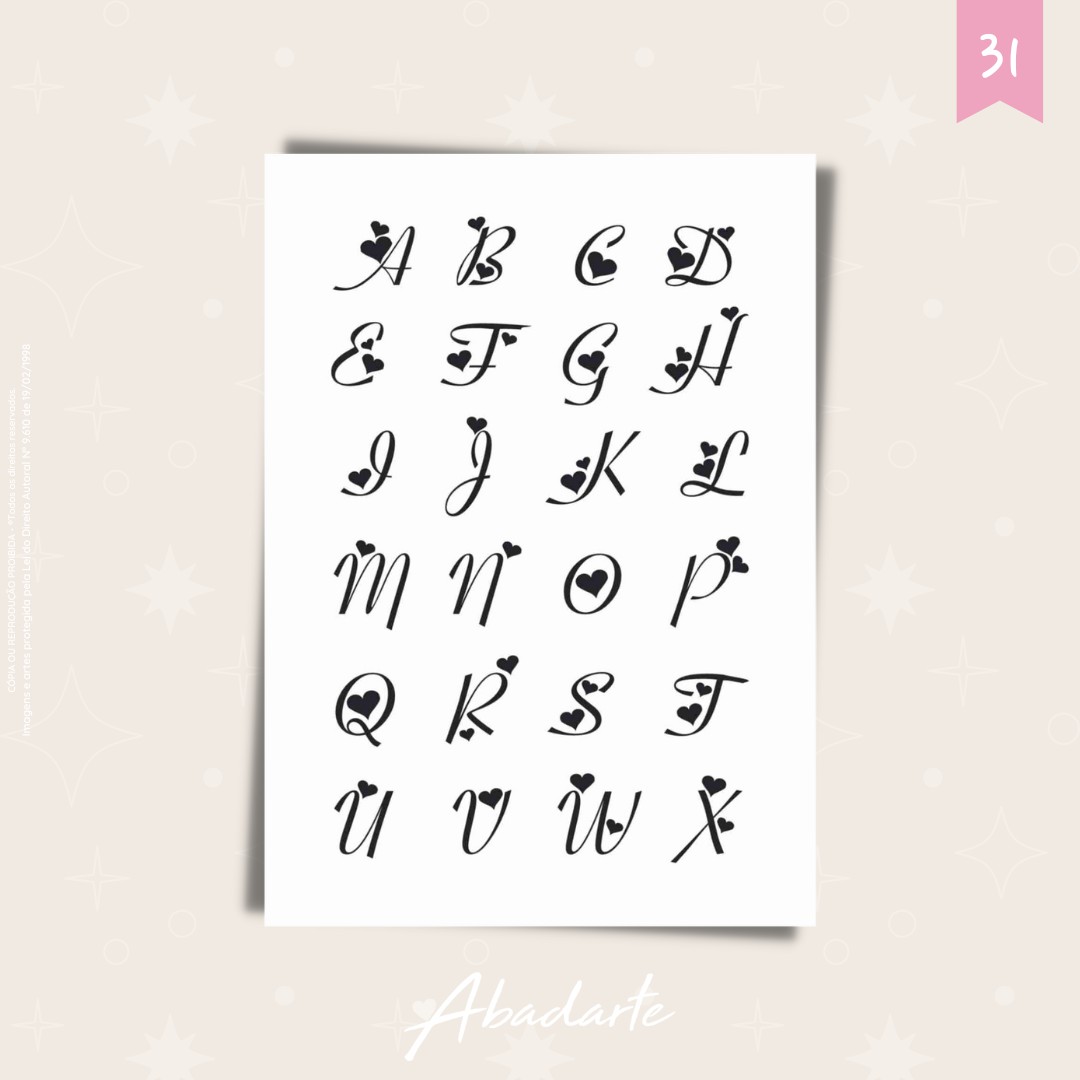 31
A B C D
E F G H
I J K L
M N O P
Q R S T
U V W X
Abadarte
CÓPIA OU REPRODUÇÃO PROIBIDA - ®Todos os direitos reservados.
Imagens e artes protegida pela Lei do Direito Autoral Nº 9.610 de 19/02/1998